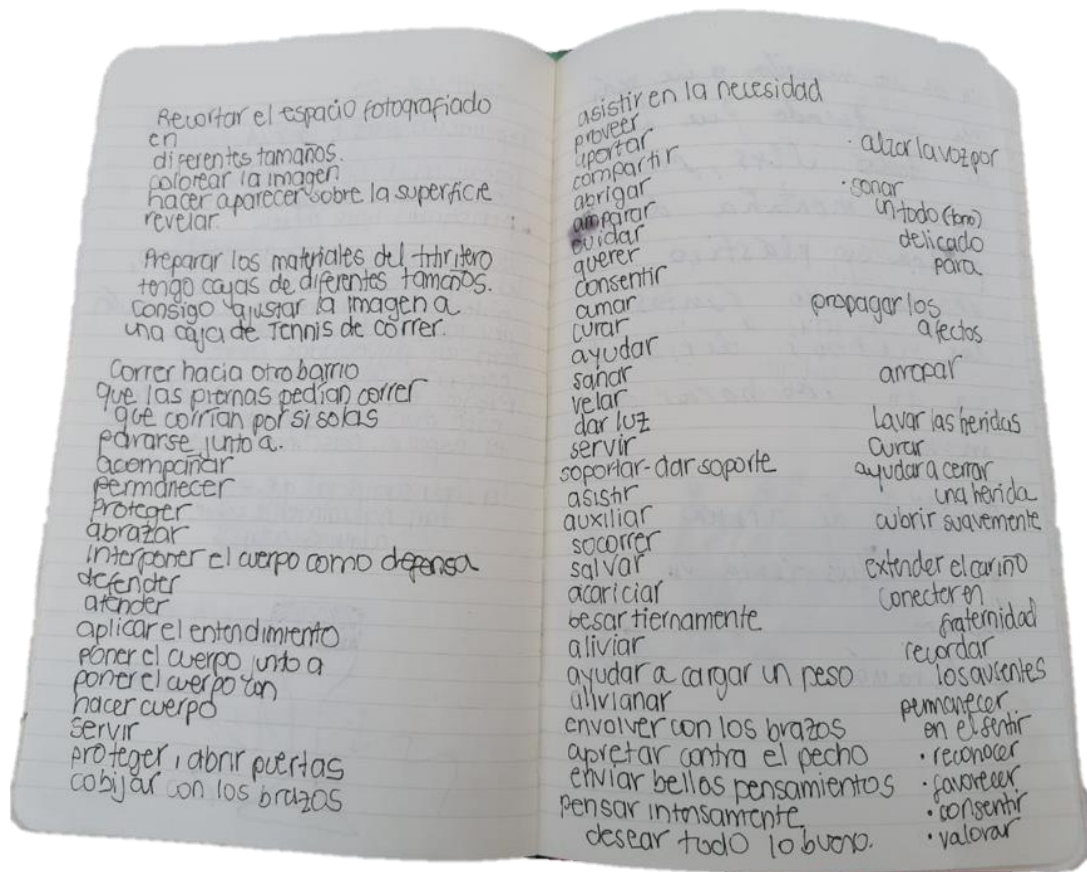 Recortar el espacio fotografiado
en
diferentes tamaños.
colorear la imagen
hacer aparecer sobre la superficie
revelar.
Preparar los materiales del titiritero
tengo cajas de diferentes tamaños.
consigo ajustar la imagen a
una caja de Tennis de correr.
Correr hacia otro barrio
que las piernas pedían correr
que corrían por si solas
pararse junto a.
acompañar
permanecer
Proteger
abrazar
interponer el cuerpo como defensa
defender
atender
aplicar el entendimiento
poner el cuerpo junto a
poner el cuerpo con
hacer cuerpo
servir
proteger, abrir puertas
cobijar con los brazos
asistir en la necesidad
proveer
aportar
compartir
abrigar
amparar
cuidar
querer
consentir
amar
curar
ayudar
sanar
velar
dar luz
servir
soportar-dar soporte
asistir
auxiliar
socorrer
salvar
acariciar
besar tiernamente
aliviar
ayudar a cargar un peso
alivianar
envolver con los brazos
apretar contra el pecho
enviar bellos pensamientos
pensar intensamente
desear todo lo bueno.
· alzar la voz por
· sonar
un todo (tono)
delicado
para
propagar los
afectos
arropar
Lavar las heridas
curar
ayudar a cerrar
una herida
cubrir suavemente
Extender el cariño
conectar en
fraternidad
recordar
los ausentes
permanecer
en el sentir
· reconocer
· favorecer
· consentir
· valorar